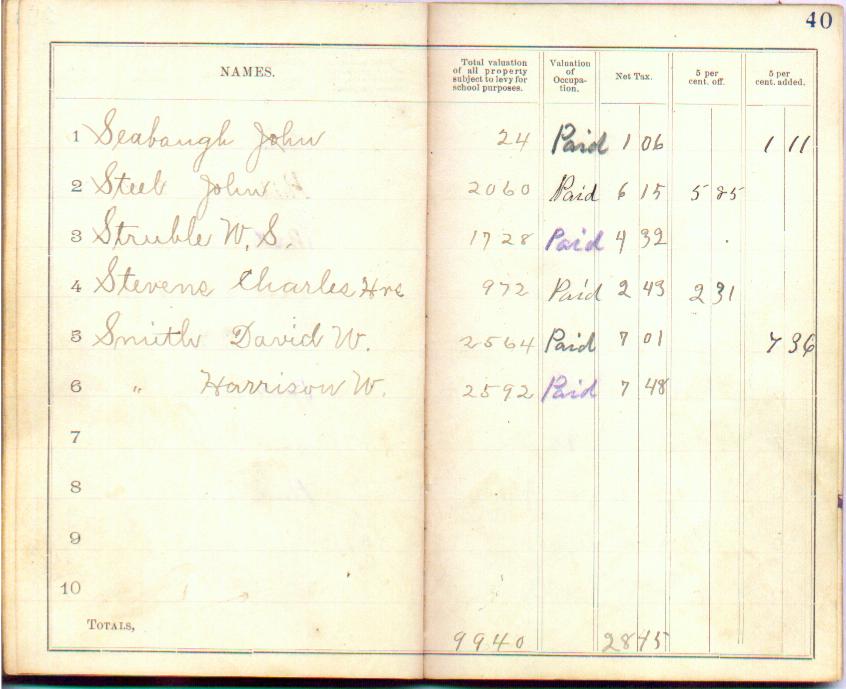 40
NAMES. Total valuation of all property subject to levy for school purposes. Valuation of Occupation. Net Tax. 5 per cent. off. 5 per cent. added.
1 Seabaugh John 24 Paid 1 06 1 11
2 Steel John 2060 Paid 6 15 5 85
3 Struble W. S. 1728 Paid 4 32
4 Stevens Charles Hrs 972 Paid 2 43 2 31
5 Smith David W. 2564 Paid 7 01 7 36
6 " Harrison W. 2592 Paid 7 48
7
8
9
10
TOTALS, 9940 28 45